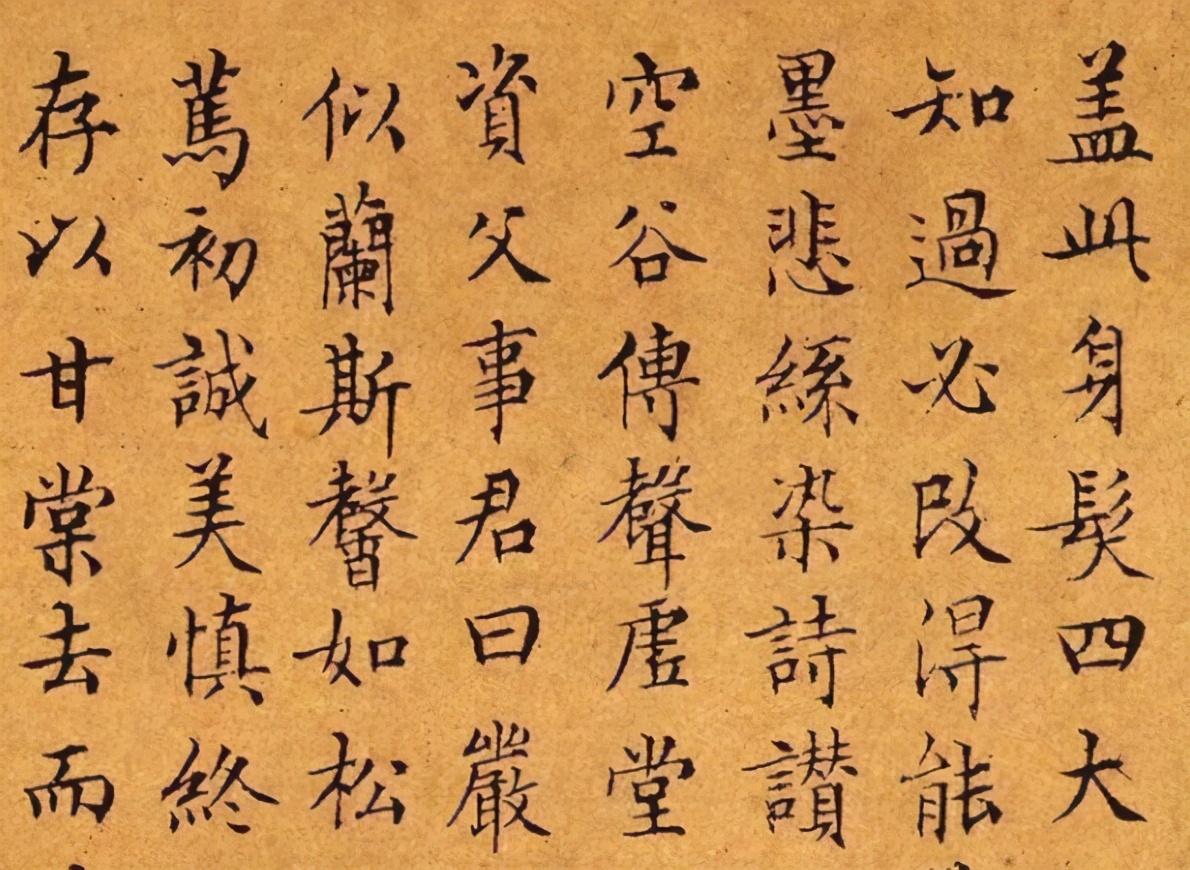 盖此身髮四大
知過必改得能
墨悲絲染詩讃
空谷傳聲虛堂
資父事君曰嚴
似蘭斯馨如松
篤初誠美慎終
存以甘棠去而